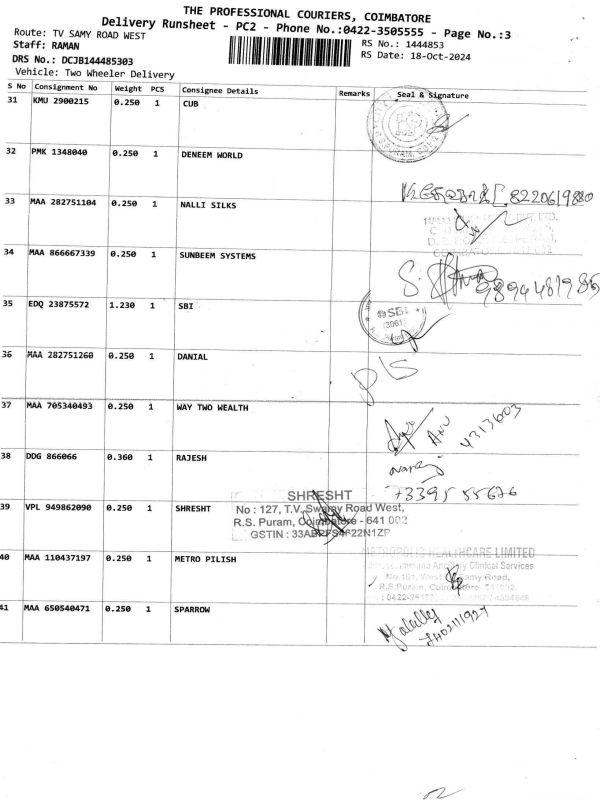 THE PROFESSIONAL COURIERS, COIMBATORE
Delivery Runsheet - PC2 - Phone No.:0422-3505555 - Page No.:3
Route: TV SAMY ROAD WEST
RS No.: 1444853
Staff: RAMAN
RS Date: 18-Oct-2024
DRS No.: DCJB144485303
Vehicle: Two Wheeler Delivery
S No Consignment No Weight PCS Consignee Details Remarks Seal & Signature
31 KMU 2900215 0.250 1 CUB
32 PMK 1348040 0.250 1 DENEEM WORLD
8220619880
33 MAA 282751104 0.250 1 NALLI SILKS
34 MAA 866667339 0.250 1 SUNBEEM SYSTEMS
9894481986
35 EDQ 23875572 1.230 1 SBI
SBI
36 MAA 282751260 0.250 1 DANIAL
37 MAA 705340493 0.250 1 WAY TWO WEALTH
ANU 4313603
38 DDG 866066 0.360 1 RAJESH
73395 55676
39 VPL 949862090 0.250 1 SHRESHT
SHRESHT
No : 127, T.V. Swamy Road West,
R.S. Puram, Coimbatore - 641 002
GSTIN :
40 MAA 110437197 0.250 1 METRO PILISH
METROPOLIS HEALTHCARE LIMITED
Clinical Services
No.191, West Samy Road,
R.S.Puram, Coimbatore- 641002.
41 MAA 650540471 0.250 1 SPARROW